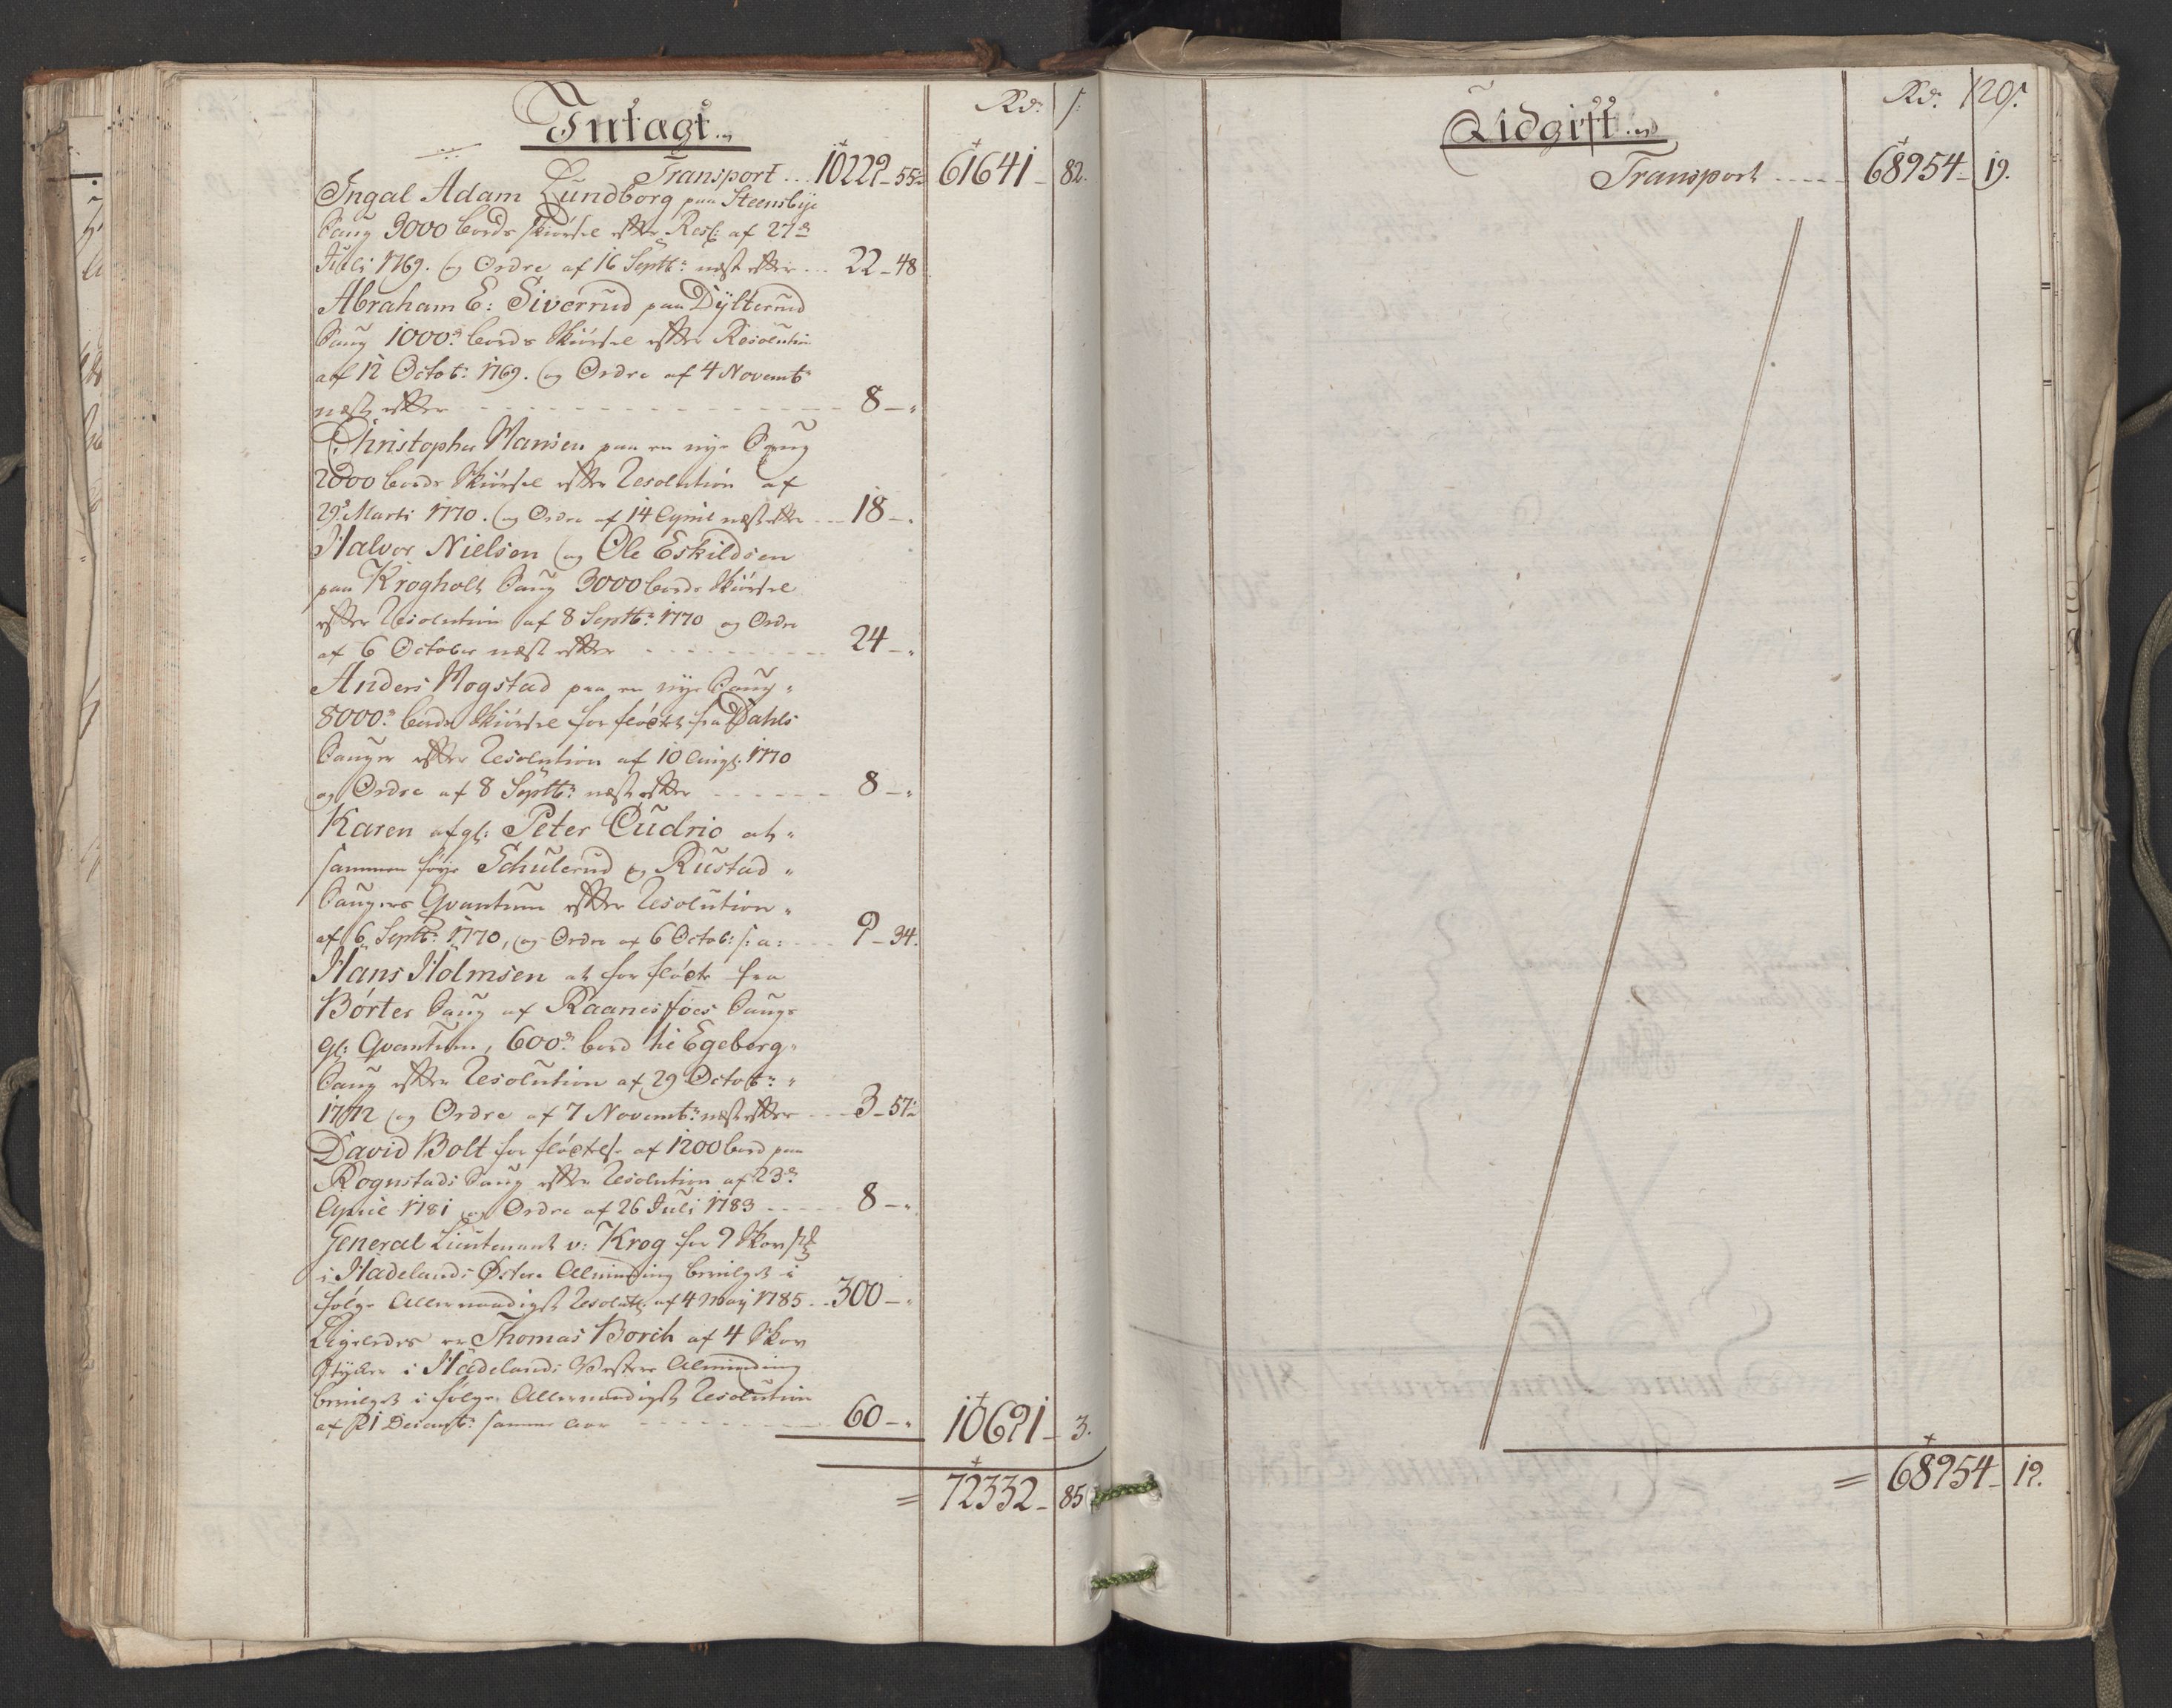 Indtægt.
Rd: s:
Transport ... 10229 - 55½ 61641 - 82.
Ingal Adam Lundborg paa Steensbye
Saug 3000 bords skiørsel efter Resl: af 27de
Juli 1769. og Ordre af 16 Septbr: næst efter ... 22 - 48
Abraham E: Siverrud paa Dylterud
Saug 1000de bords Skiørsel efter Resolution
af 12 Octobr: 1769. og Ordre af 4 Novembr
næst efter - - - 8 - "
Christopher Hansen paa en nye Saug
2000 bords Skiørsel efter Resolution af
29de Marti 1770. og Ordre af 14 April næst efter ... 18 - "
Halvor Nielsen og Ole Eskildsen
paa Krogholt Saug 3000 bords Skiørsel
efter Resolution af 8 Septbr: 1770 og Ordre
af 6 October næst efter - - - 24 - "
Anders Hogstad paa en nye Saug
8000de bords Skiørsel for fløttet fra Dahls
Sauger efter Resolution af 10 Augl: 1770
og Ordre af 8 Septbr: næst efter - - - 8 - "
Karen afgl: Peter Oudrio at
sammen føye Schulerud og Rustad
Saugers Qvantum efter Resolution
af 6 Septbr: 1770, og Ordre af 6 Octob: s: a: ... 9 - 34.
Hans Holmsen at for fløtte fra
Børter Saug af Raanesfoes Saugs
gl: Qvantum, 600de bord til Egeberg
Saug efter Resolution af 29 Octobr:
1772 og Ordre af 7 Novembr: næst efter ... 3 - 57½
David Bolt for fløttelse af 1200 bord paa
Rognstads Saug efter Resolution af 23de
April 1781 og Ordre af 26 Juli 1783 - - - 8 - "
General Lieutenant v: Krog for 9 Skov
i Hadelands Østere Alminding bevilget i
følge Allernaadigst Resolutl: af 4 Maj 1785 .. 300 - "
Ligeledes er Thomas Borch af 4 Skov
Stykker i Hadelands Vestere Alminding
bevilget i følge Allernaadigste Resolution
af 21 Decembr: samme Aar - - - 60 - " 10691 - 3.
= 72332 - 85
Udgift.
Rd: s:
120
Transport - - - 68954 - 19.
= 68954 - 19.